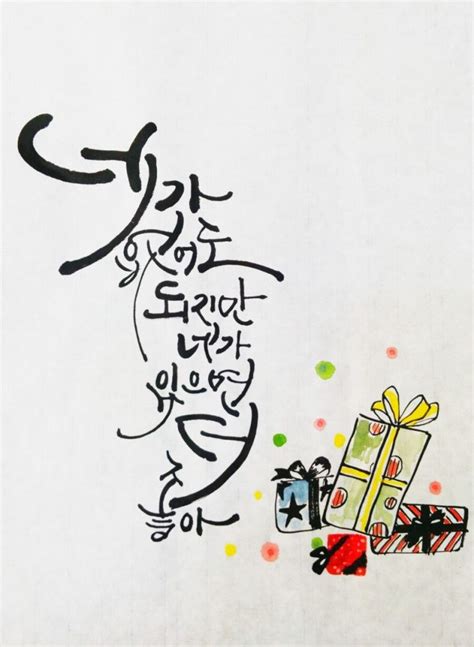 네가
없어도
되지만
네가
있으면
더
좋아